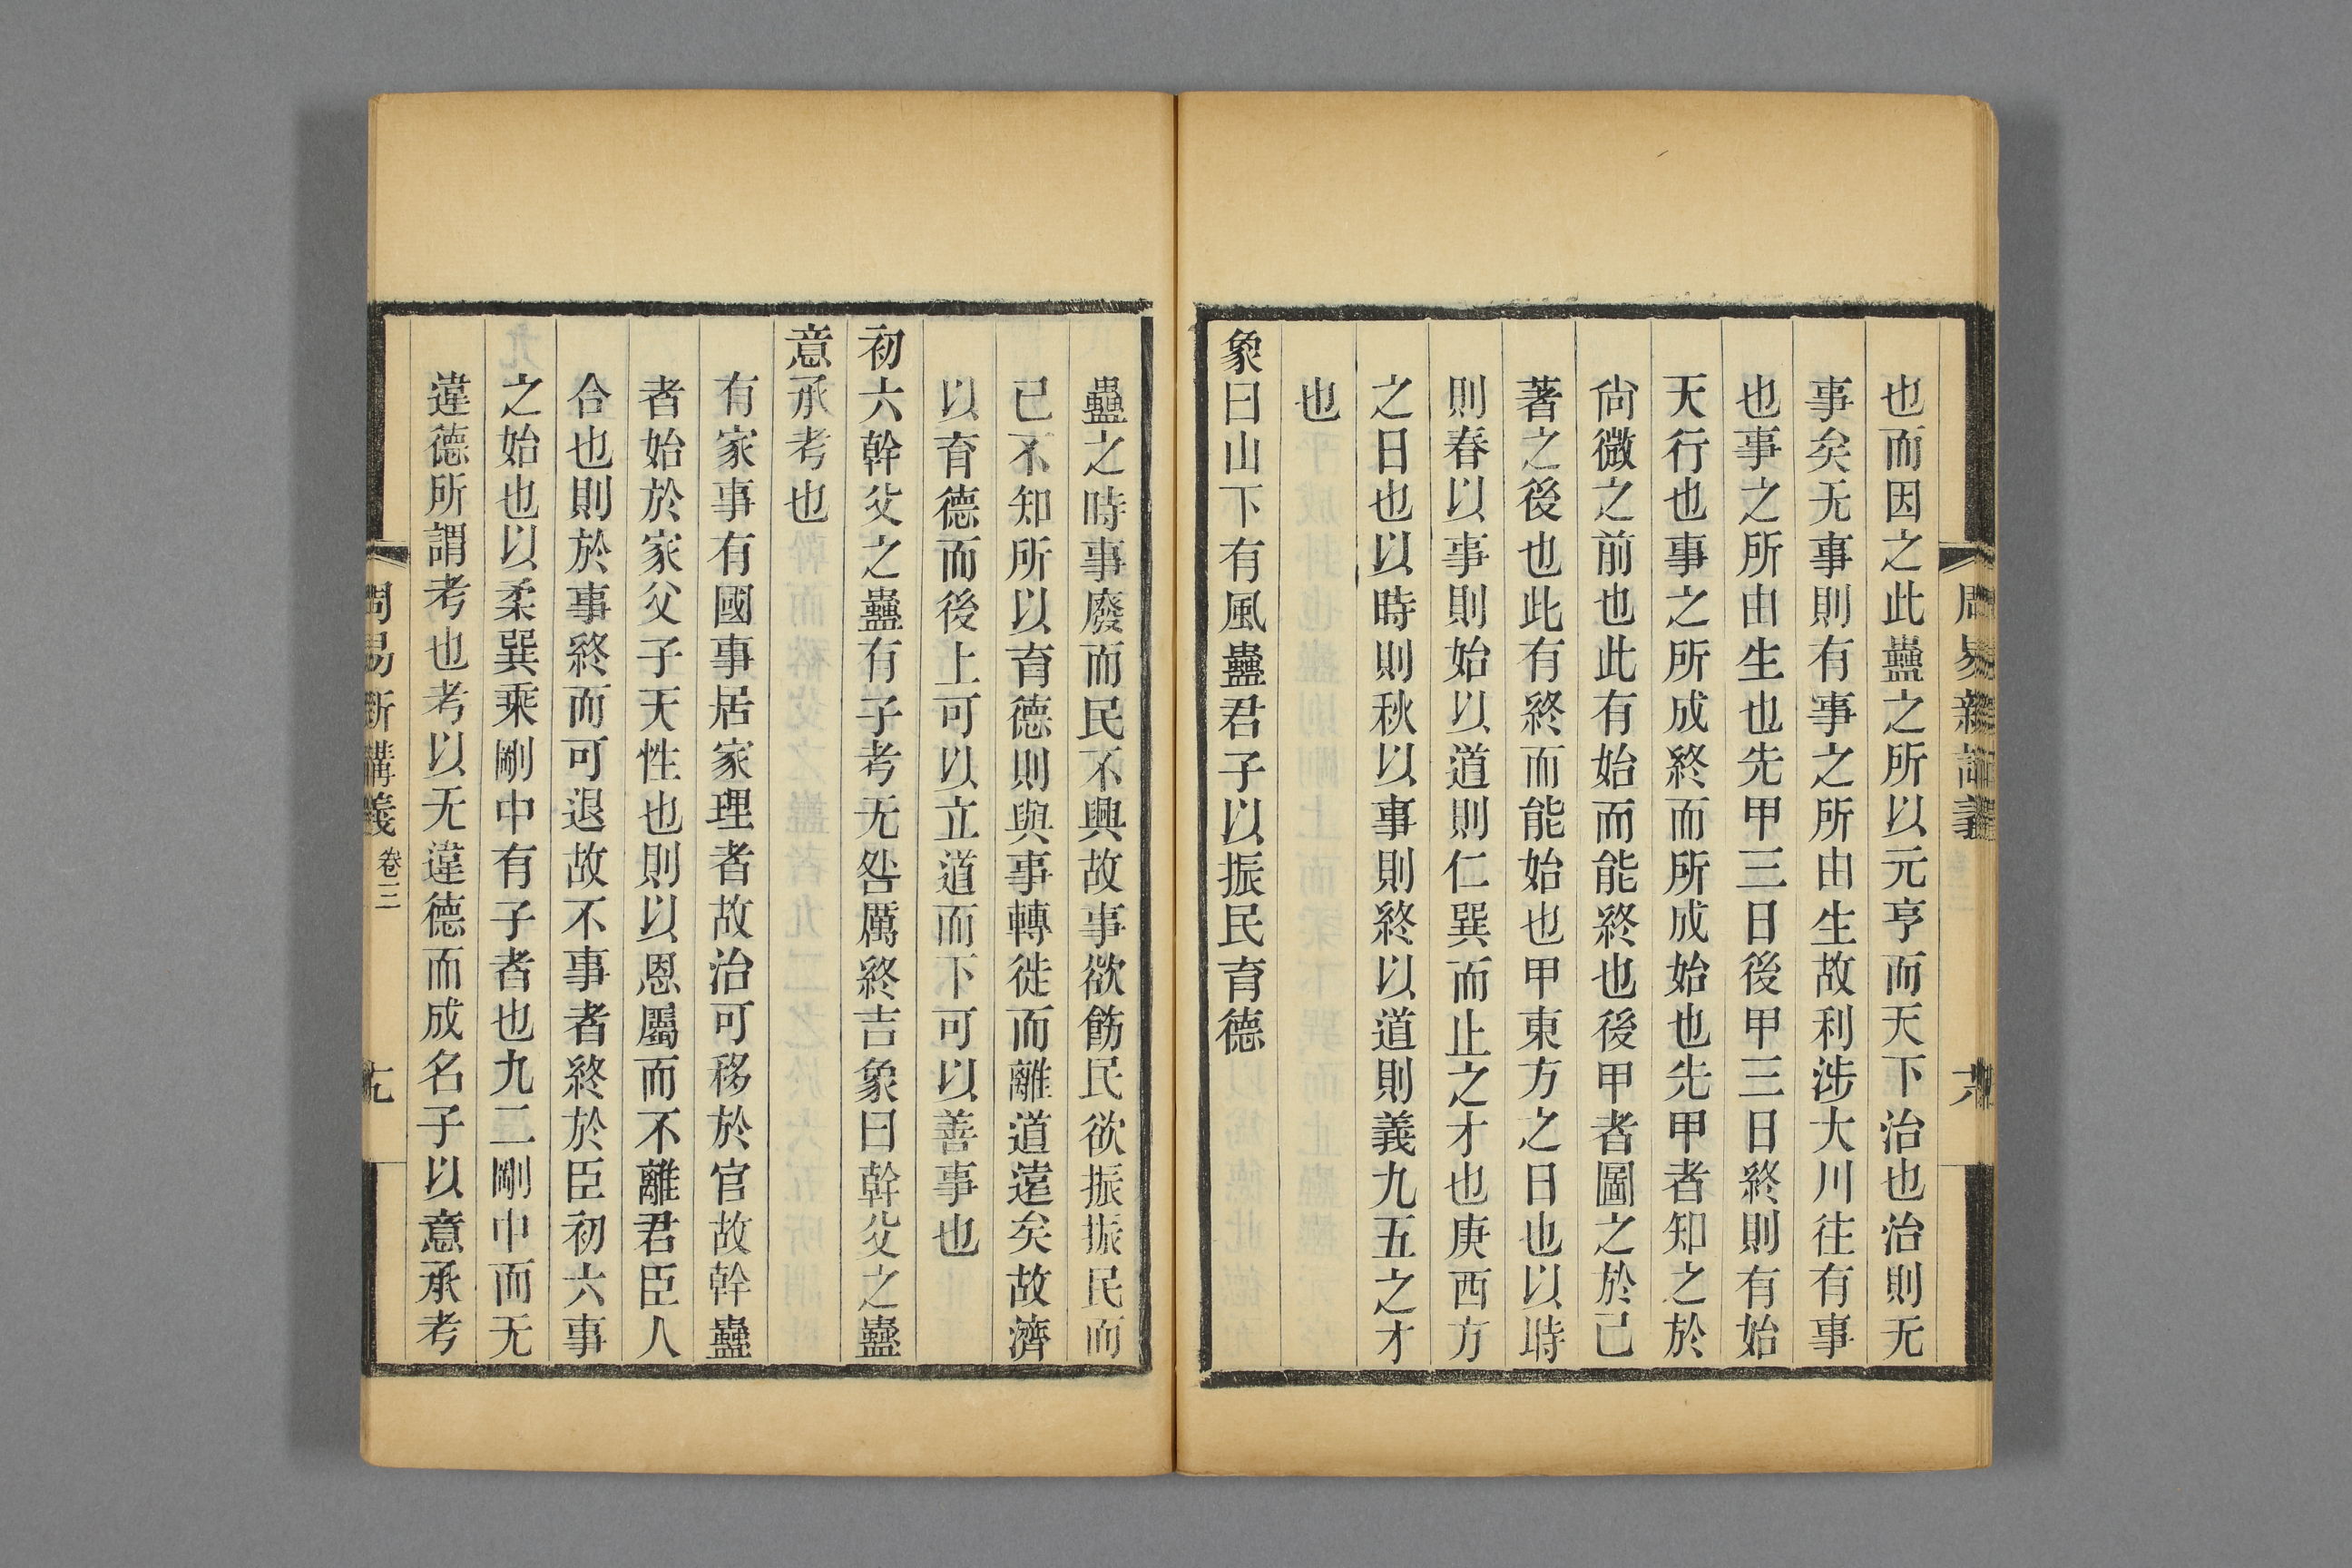 也而因之此蠱之所以元亨而天下治也治則无
事矣无事則有事之所由生故利涉大川往有事
也事之所由生也先甲三日後甲三日終則有始
天行也事之所成終而所成始也先甲者知之於
尙微之前也此有始而能終也後甲者圖之於已
著之後也此有終而能始也甲東方之日也以時
則春以事則始以道則仁巽而止之才也庚西方
之日也以時則秋以事則終以道則義九五之才
也
象曰山下有風蠱君子以振民育德
蠱之時事廢而民不興故事欲飭民欲振振民而
已不知所以育德則與事轉徙而離道遠矣故濟
以育德而後上可以立道而下可以善事也
初六幹父之蠱有子考无咎厲終吉象曰幹父之蠱
意承考也
有家事有國事居家理者故治可移於官故幹蠱
者始於家父子天性也則以恩屬而不離君臣人
合也則於事終而可退故不事者終於臣初六事
之始也以柔巽乘剛中有子者也九二剛中而无
違德所謂考也考以无違德而成名子以意承考
周易新講義 卷三